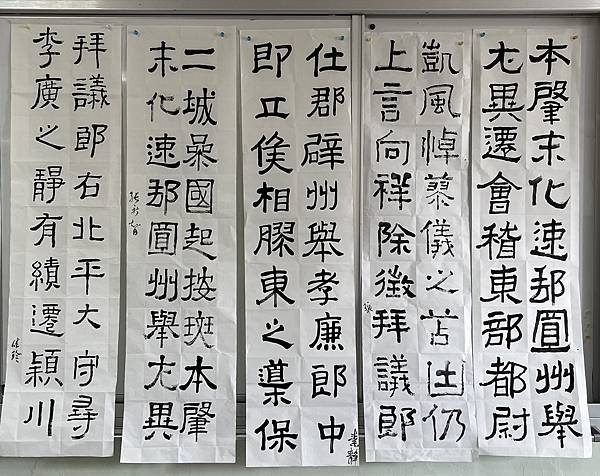 本肇末化速邦圓州舉
尤異遷會稽東部都尉
凱風悼蓼儀之苫凷仍
上言向祥除徵拜議郎
仕郡辟州舉孝廉郎中
即丘侯相膠東之渠保
素靜
二城參國起按斑本肇
末化速邦圓州舉尤異
拜議郎右北平大守尋
李廣之靜有績遷潁川
佳玲